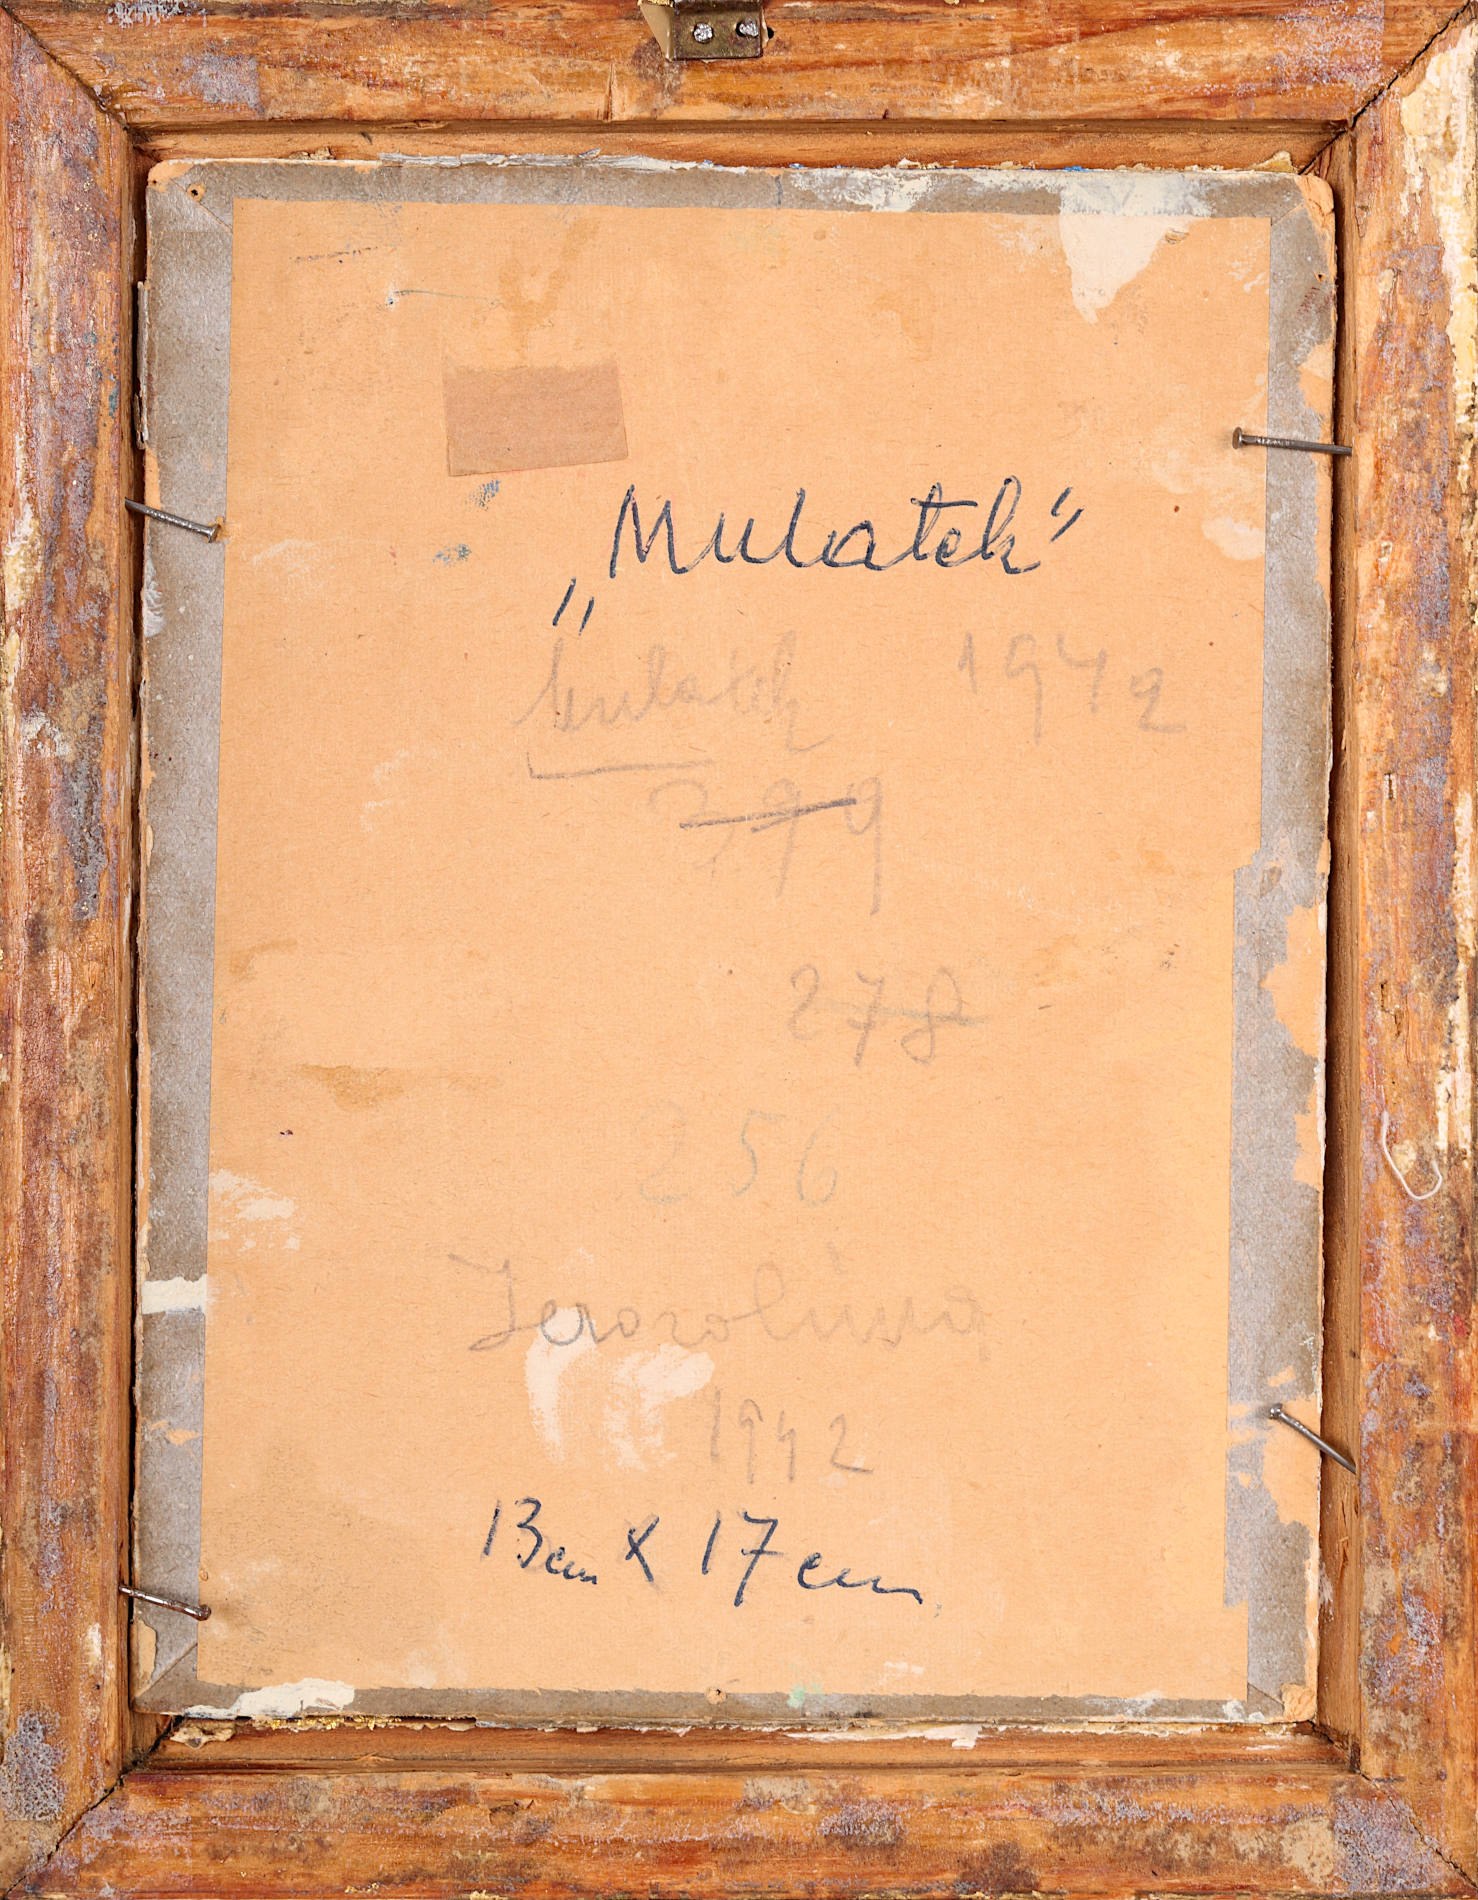 „Mulatek"
Mulatek 1942
299
278
256
Jerozolima
1942
13 cm x 17 cm